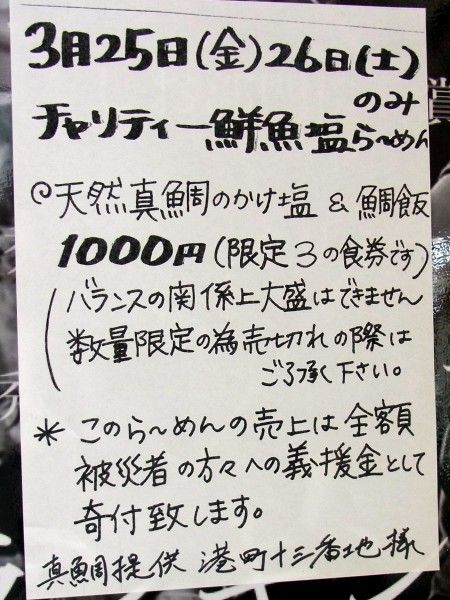 3月25日(金)26日(土)
のみ
チャリティー鮮魚塩ら〜めん
天然真鯛のかけ塩 & 鯛飯
1000円(限定3の食券です)
(バランスの関係上大盛はできません
数量限定の為売切れの際は
ご了承下さい。
* このら〜めんの売上は全額
被災者の方々への義援金として
寄付致します。
真鯛提供 港町十三番地様